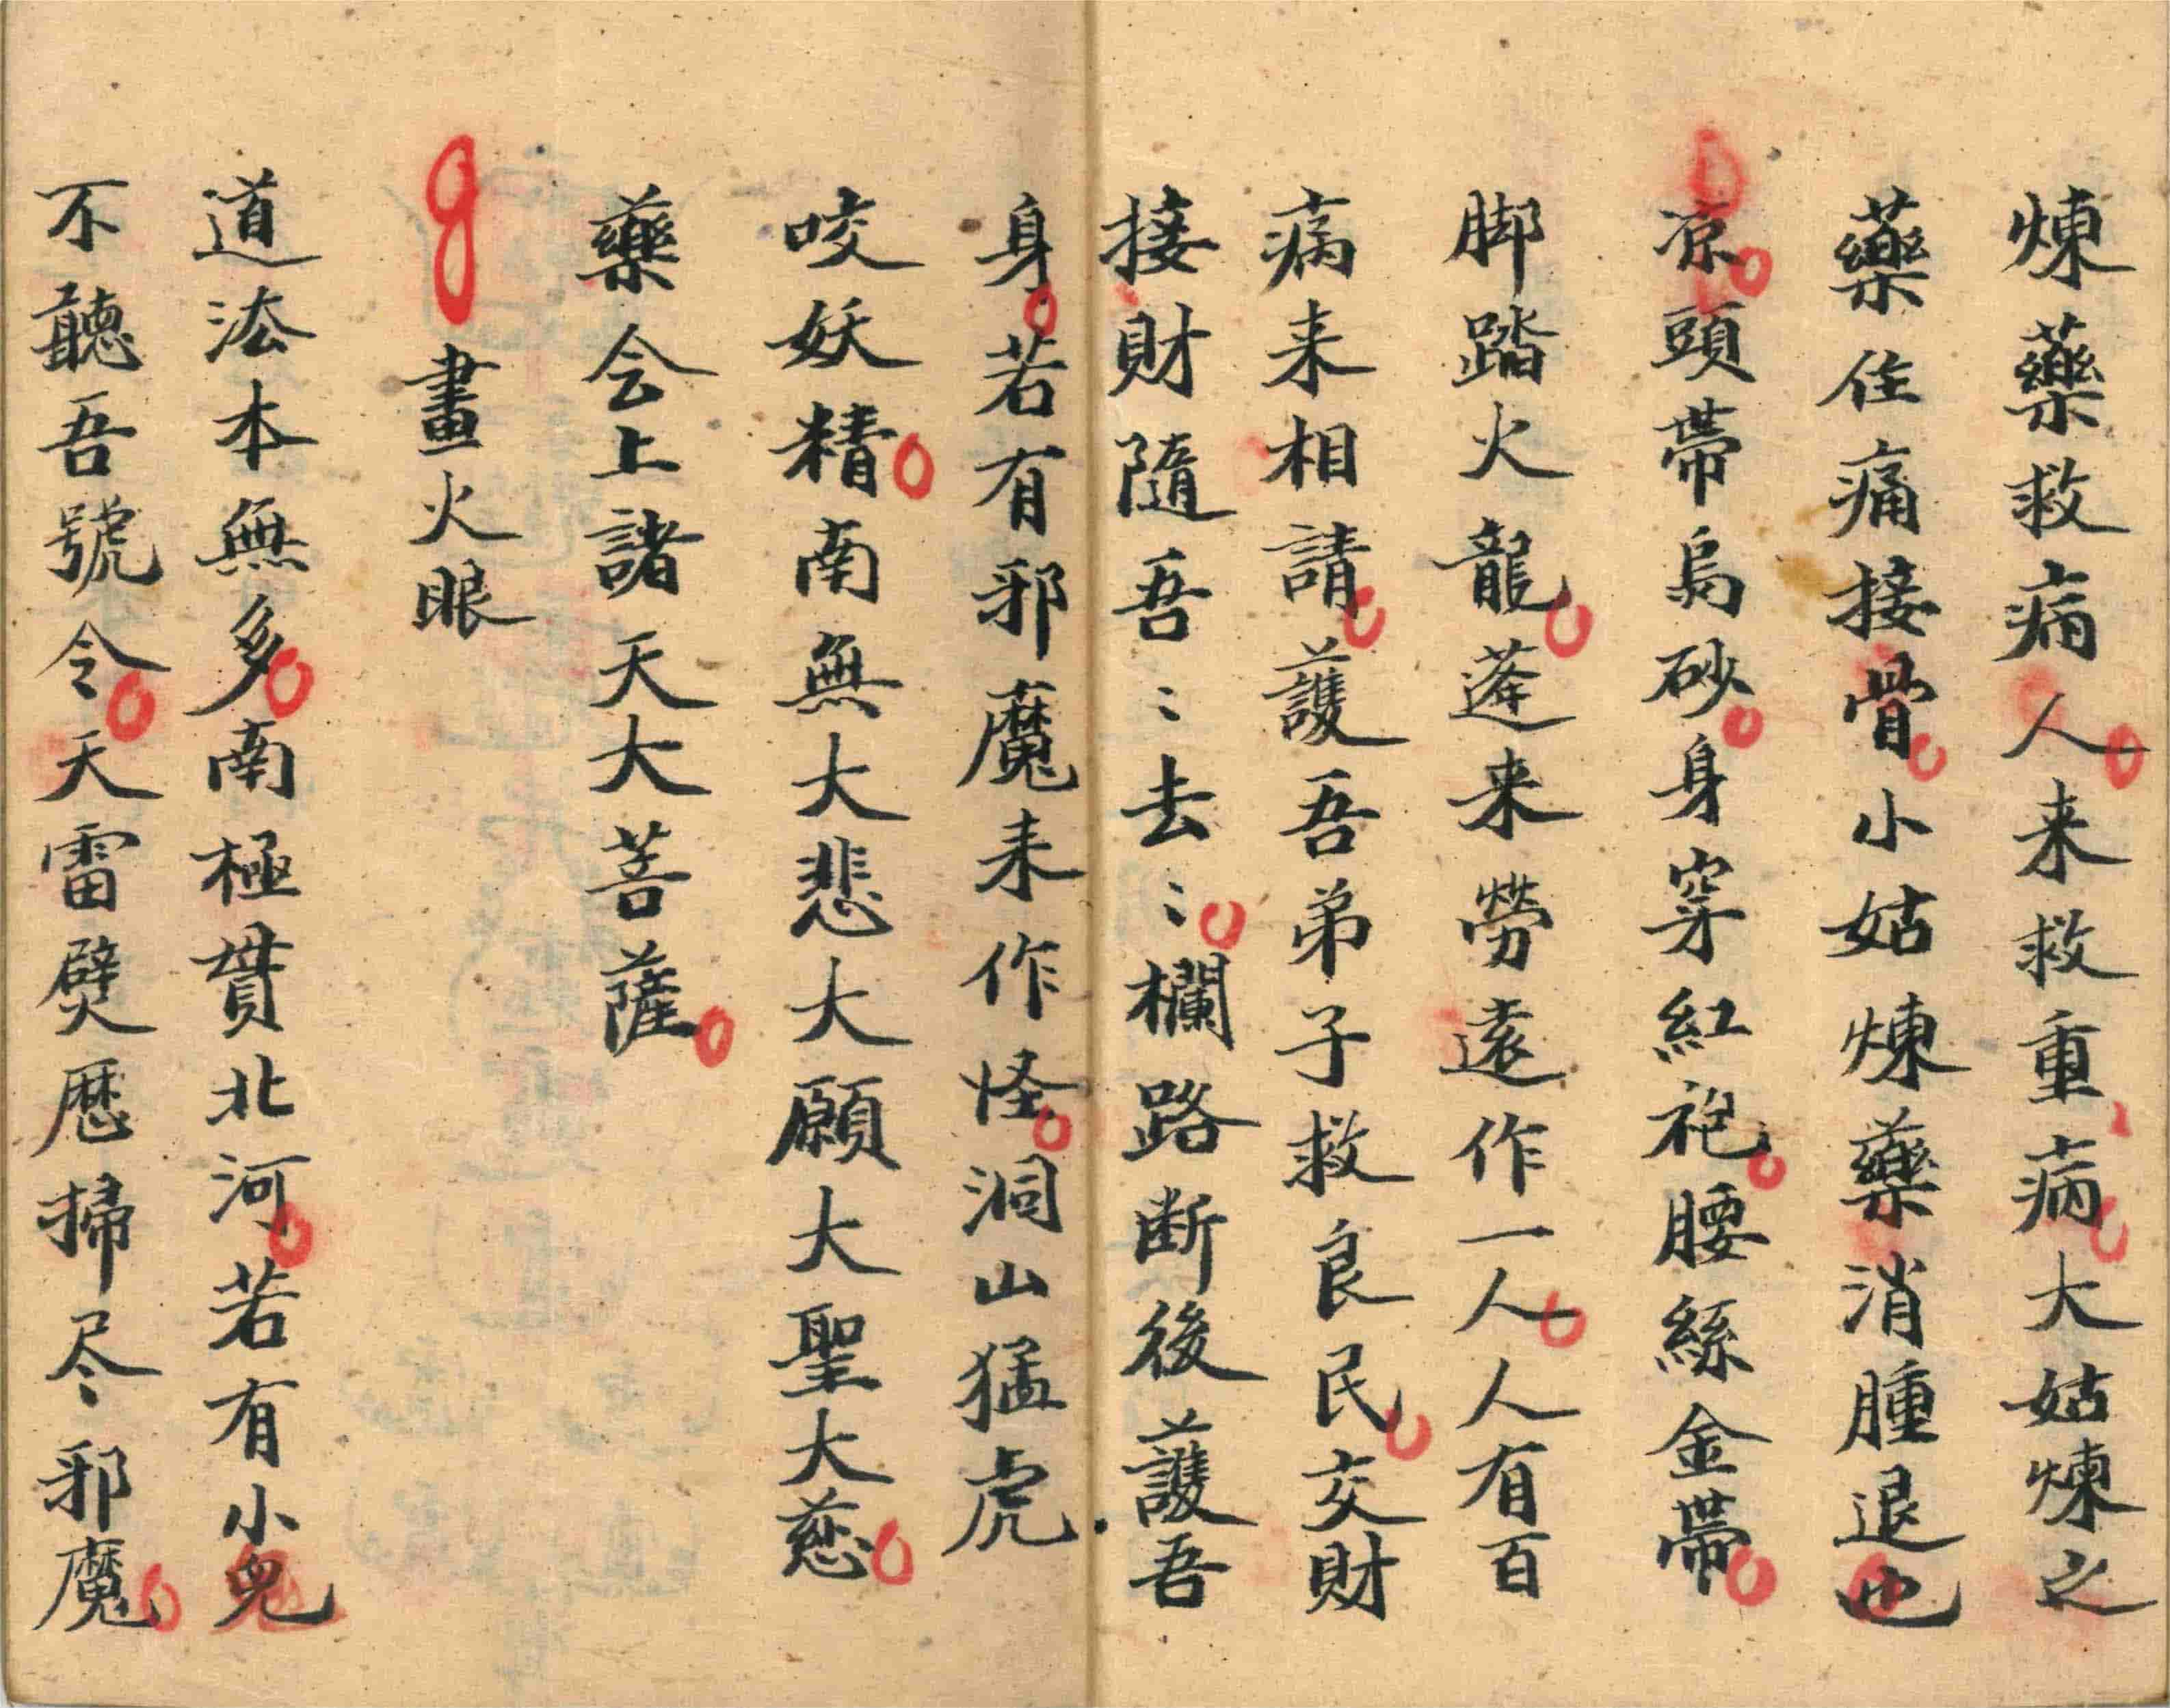 煉藥救病人来救重病大姑煉之
藥住痛接骨小姑煉藥消腫退也
凉頭帯烏砂身穿紅袍腰絲金帯
脚踏火龍蓬来勞遠作一人人有百
病来相請護吾弟子救良民交財
接財隨吾〻去〻欄路断後護吾
身若有邪魔来作怪洞山猛虎
咬妖精南無大悲大願大聖大慈
藥会上諸天大菩薩
畫火眼
道法本無多南極貫北河若有小鬼
不聽吾號令天雷劈歷掃尽邪魔